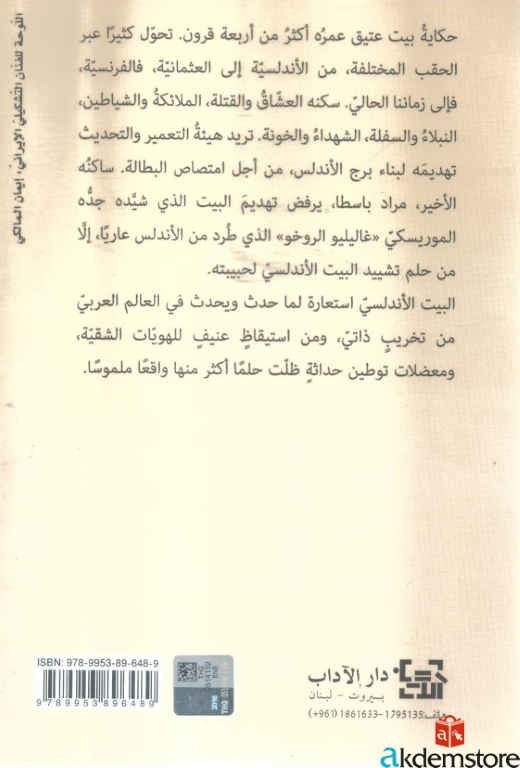 حكايةُ بيت عتيق عمرُه أكثرُ من أربعة قرون. تحوّل كثيرًا عبر
الحقب المختلفة، من الأندلسيّة إلى العثمانيّة، فالفرنسيّة،
فإلى زماننا الحاليّ. سكنه العشّاقُ والقتلة، الملائكةُ والشياطين،
النبلاءُ والسفلة، الشهداءُ والخونة. تريد هيئةُ التعمير والتحديث
تهديمَه لبناء برج الأندلس، من أجل امتصاص البطالة. ساكنُه
الأخير، مراد باسطا، يرفض تهديمَ البيت الذي شيَّده جدُّه
الموريسكيّ «غاليليو الروخو» الذي طُرد من الأندلس عاريًا، إلَّا
من حلم تشييد البيت الأندلسيّ لحبيبته.
البيت الأندلسيّ استعارة لما حدث ويحدث في العالم العربيّ
من تخريبٍ ذاتيّ، ومن استيقاظٍ عنيفٍ للهويّات الشقيّة،
ومعضلات توطين حداثةٍ ظلّت حلمًا أكثر منها واقعًا ملموسًا.
اللوحة للفنان التشكيلي الإيراني، إيمان المالكي
ISBN: 978-9953-89-648-9
9 789953 896489
2016
دار الآداب
بيروت - لبنان
هاتف: 1795135- 1861633 (961+)
akdemstore